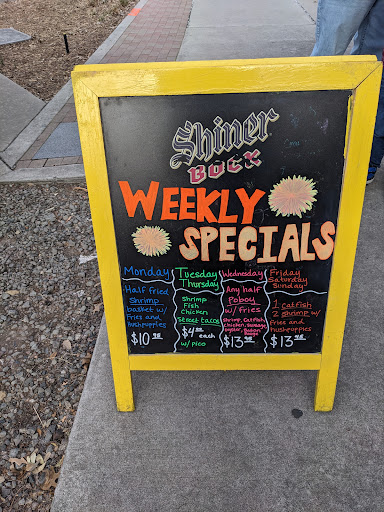 Shiner
BOCK
WEEKLY
SPECIALS
Monday
Half fried
Shrimp
basket w/
fries and
hushpuppies
$10
Tuesday
Thursday
Shrimp
Fish
Chicken
Street tacos
$4
each
w/ pico
Wednesday
Any half
Poboy
w/ fries
Shrimp, Catfish,
chicken, Sausage
oyster,
$13
Friday
Saturday
Sunday
1 Catfish
2 Shrimp w/
fries and
hushpuppies
$13